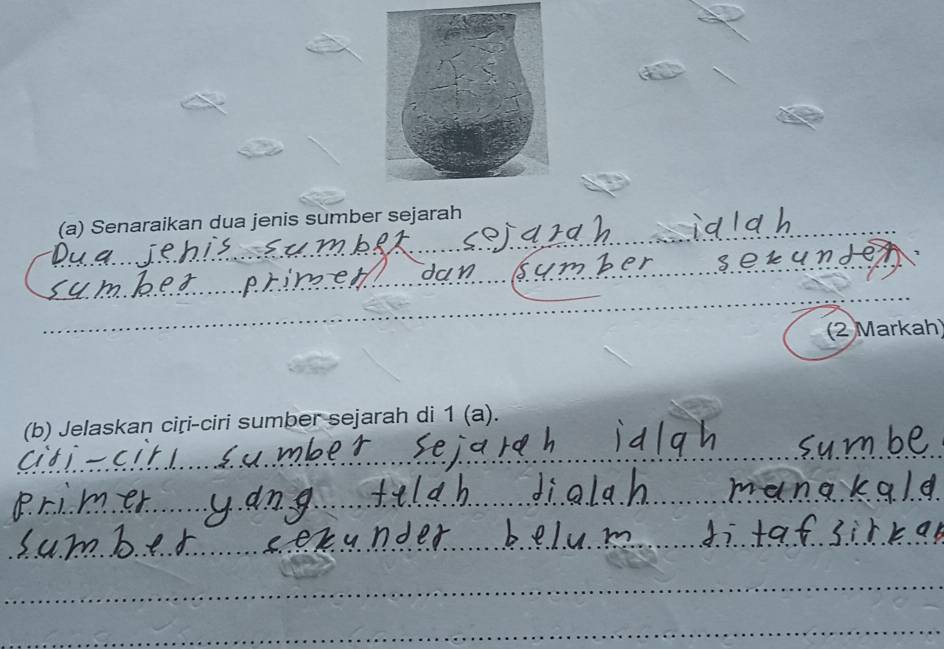 (a) Senaraikan dua jenis sumber sejarah
Dua jenis sumber sejarah ialah
sumber primer dan sumber sekunder.
(2 Markah)
(b) Jelaskan ciri-ciri sumber sejarah di 1 (a).
ciri-ciri sumber sejarah ialah sumbe
primer yang telah dialah manakala
sumber sekunder belum ditafsirkan